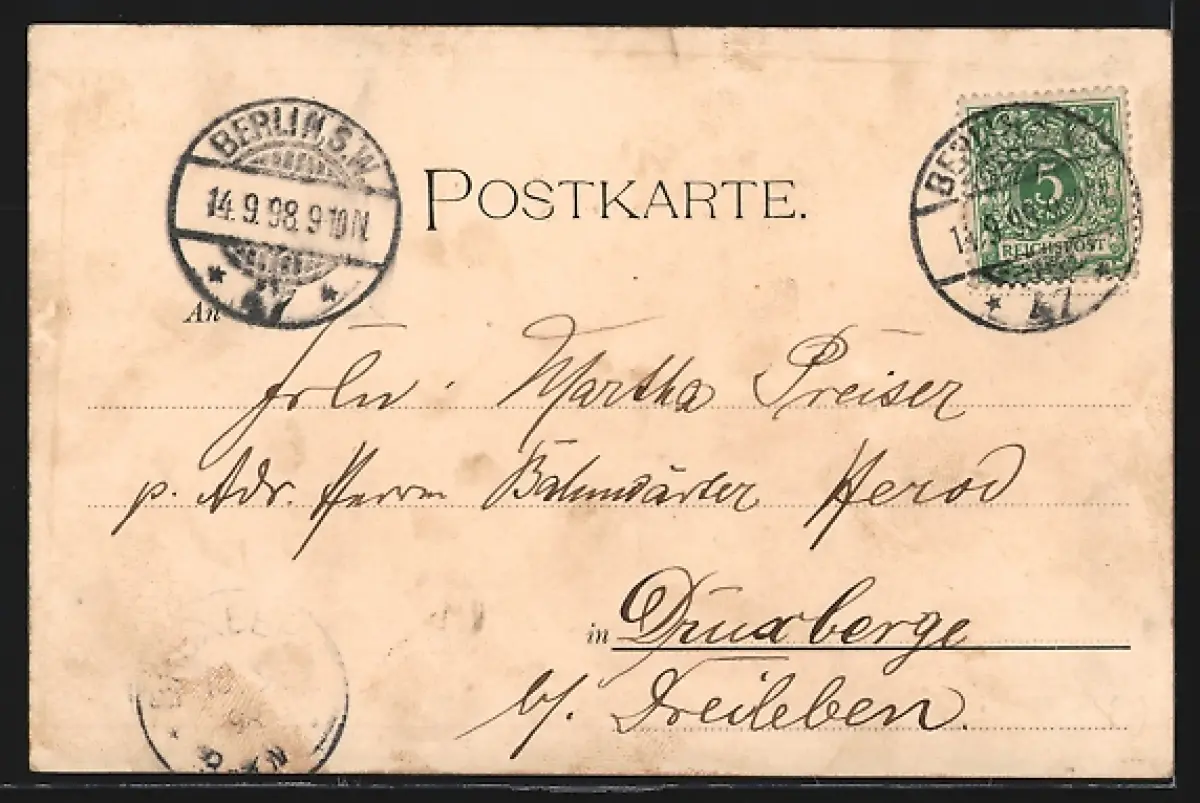 BERLIN, S.W.
14.9.98. 9-10N.
47
POSTKARTE.
5
REICHSPOST
An
Frln. Martha Preiser
p. Adr. Herrn Bahnwärter Herod
in Druxberge
b/. Dreileben.